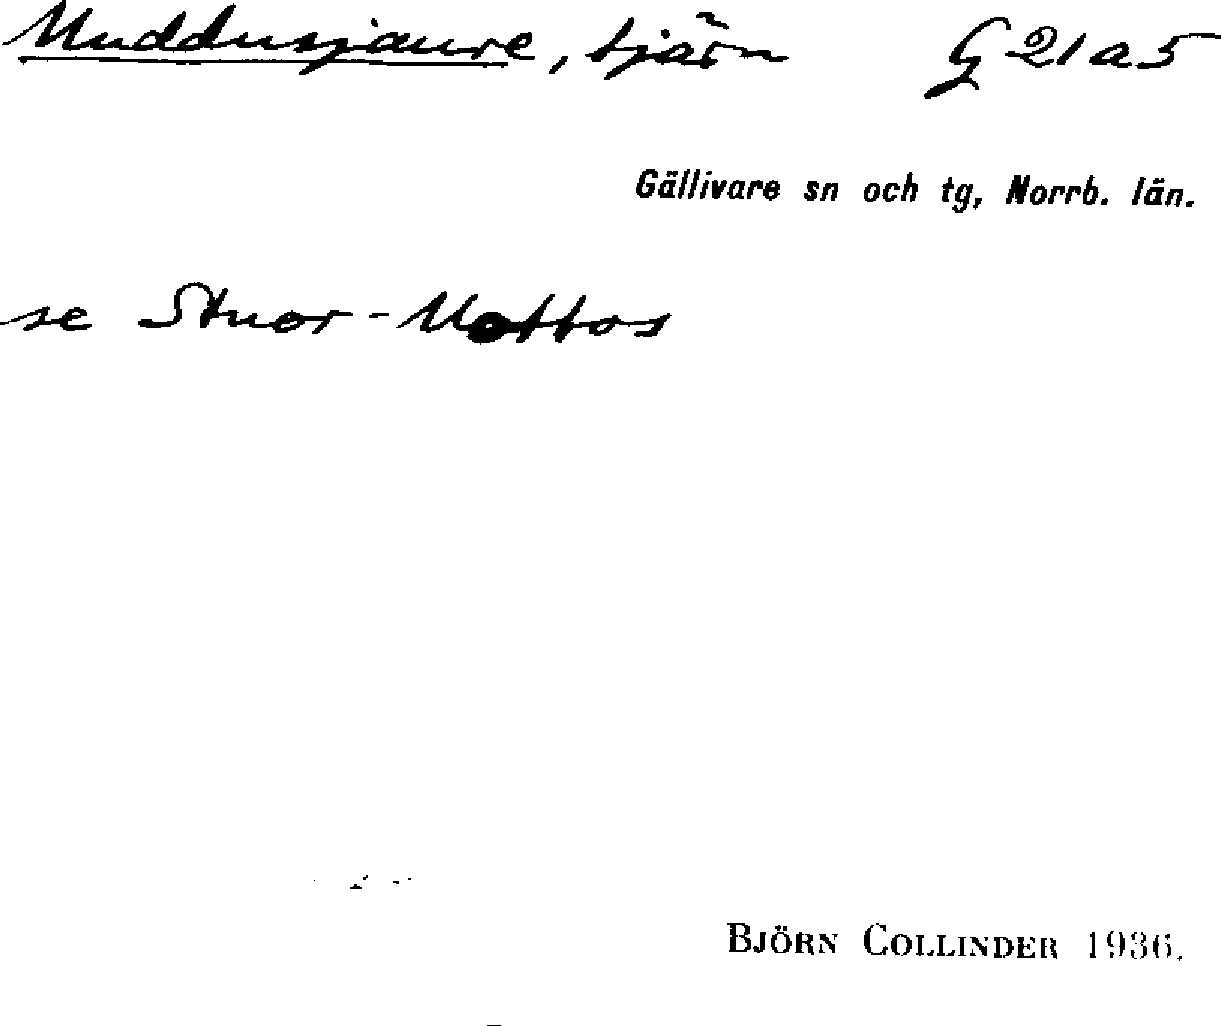 Muddusjaure, tjärn G 21 a 5
Gällivare sn och tg, Norrb. län.
se Stuor-Mottos
BJÖRN COLLINDER 1936.